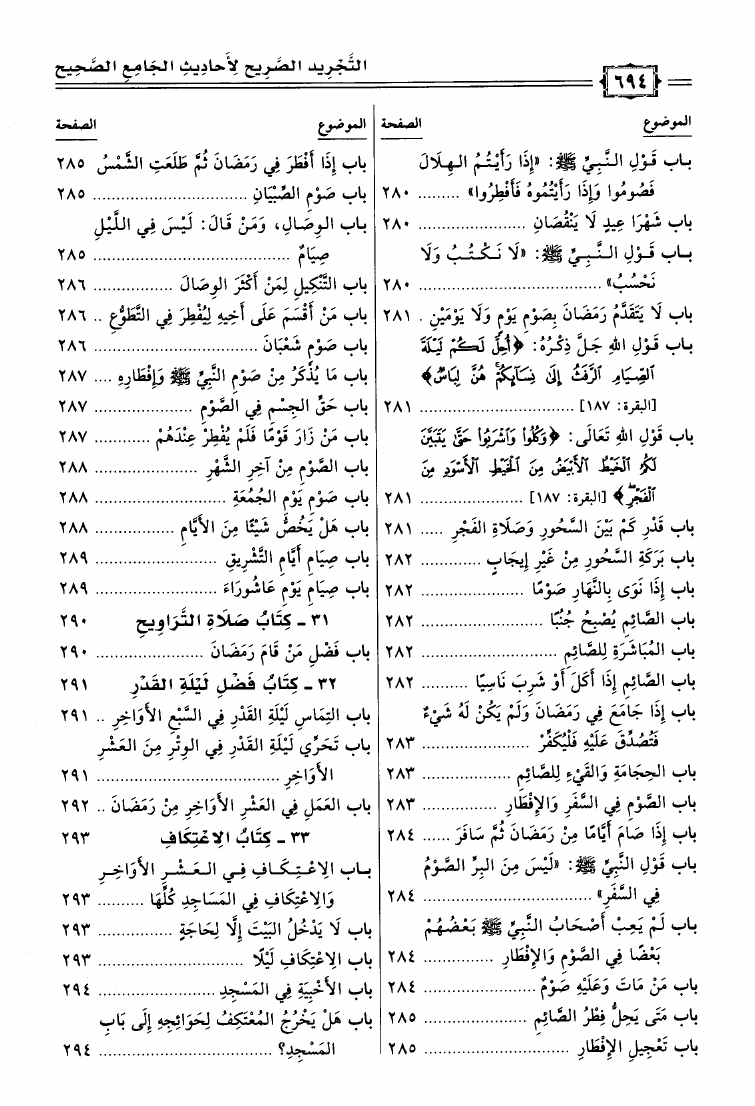 التَّجْرِيد الصَّرِيح لِأَحادِيثِ الجَامِعِ الصَّحِيحِ
٦٩٤
الموضوع الصفحة
بـاب قَـوْلِ الـنَّـبِـيِّ ﷺ: «إِذَا رَأَيْتُمُ الـهِـلَالَ
فَصُومُوا وَإِذَا رَأَيْتُمُوهُ فَأَفْطِرُوا» ......... ٢٨٠
باب شَهْرَا عِيدٍ لَا يَنْقُصَانِ ......................... ٢٨٠
بـاب قَـوْلِ الـنَّـبِـيِّ ﷺ: «لَا نَـكْـتُـبُ وَلَا
نَحْسُبُ» ................................... ٢٨٠
باب لَا يَتَقَدَّمُ رَمَضَانَ بِصَوْمِ يَوْمٍ وَلَا يَوْمَيْنِ . ٢٨١
بـاب قَوْلِ اللهِ جَـلَّ ذِكْـرُهُ: ﴿أُحِلَّ لَكُمْ لَيْلَةَ
ٱلصِّيَامِ ٱلرَّفَثُ إِلَىٰ نِسَآئِكُمْ هُنَّ لِبَاسٌ﴾
[البقرة: ١٨٧] ............................... ٢٨١
باب قَوْلِ اللهِ تَعَالَى: ﴿وَكُلُوا۟ وَٱشْرَبُوا۟ حَتَّىٰ يَتَبَيَّنَ
لَكُمُ ٱلْخَيْطُ ٱلْأَبْيَضُ مِنَ ٱلْخَيْطِ ٱلْأَسْوَدِ مِنَ
ٱلْفَجْرِ﴾ [البقرة: ١٨٧] ..................... ٢٨١
باب قَدْرِ كَمْ بَيْنَ السَّحُورِ وَصَلَاةِ الفَجْرِ ..... ٢٨١
باب بَرَكَةِ السَّحُورِ مِنْ غَيْرِ إِيجَابٍ ............ ٢٨٢
باب إِذَا نَوَى بِالنَّهَارِ صَوْمًا ....................... ٢٨٢
باب الصَّائِمِ يُصْبِحُ جُنُبًا ........................... ٢٨٢
باب المُبَاشَرَةِ لِلصَّائِمِ ............................. ٢٨٢
باب الصَّائِمِ إِذَا أَكَلَ أَوْ شَرِبَ نَاسِيًا .......... ٢٨٢
باب إِذَا جَامَعَ فِي رَمَضَانَ وَلَمْ يَكُنْ لَهُ شَيْءٌ
فَتُصُدِّقَ عَلَيْهِ فَلْيُكَفِّرْ ..................... ٢٨٣
باب الحِجَامَةِ وَالقَيْءِ لِلصَّائِمِ .................... ٢٨٣
باب الصَّوْمِ فِي السَّفَرِ وَالإِفْطَارِ ................ ٢٨٣
باب إِذَا صَامَ أَيَّامًا مِنْ رَمَضَانَ ثُمَّ سَافَرَ ...... ٢٨٤
باب قَوْلِ النَّبِيِّ ﷺ: «لَيْسَ مِنَ البِرِّ الصَّوْمُ
فِي السَّفَرِ» ................................. ٢٨٤
باب لَمْ يَعِبْ أَصْحَابُ النَّبِيِّ ﷺ بَعْضُهُمْ
بَعْضًا فِي الصَّوْمِ وَالإِفْطَارِ .............. ٢٨٤
باب مَنْ مَاتَ وَعَلَيْهِ صَوْمٌ ........................ ٢٨٤
باب مَتَى يَحِلُّ فِطْرُ الصَّائِمِ ..................... ٢٨٥
باب تَعْجِيلِ الإِفْطَارِ ............................... ٢٨٥
الموضوع الصفحة
باب إِذَا أَفْطَرَ فِي رَمَضَانَ ثُمَّ طَلَعَتِ الشَّمْسُ ٢٨٥
باب صَوْمِ الصِّبْيَانِ ................................ ٢٨٥
بـاب الـوِصَالِ، وَمَنْ قَالَ: لَيْسَ فِي اللَّيْلِ
صِيَامٌ ....................................... ٢٨٥
باب التَّنْكِيلِ لِمَنْ أَكْثَرَ الوِصَالَ ................ ٢٨٦
باب مَنْ أَقْسَمَ عَلَى أَخِيهِ لِيُفْطِرَ فِي التَّطَوُّعِ .. ٢٨٦
باب صَوْمِ شَعْبَانَ ................................. ٢٨٦
باب مَا يُذْكَرُ مِنْ صَوْمِ النَّبِيِّ ﷺ وَإِفْطَارِهِ .... ٢٨٧
باب حَقِّ الجِسْمِ فِي الصَّوْمِ .................... ٢٨٧
باب مَنْ زَارَ قَوْمًا فَلَمْ يُفْطِرْ عِنْدَهُمْ ........... ٢٨٧
باب الصَّوْمِ مِنْ آخِرِ الشَّهْرِ .................... ٢٨٨
باب صَوْمِ يَوْمِ الجُمُعَةِ ........................... ٢٨٨
باب هَلْ يَخُصُّ شَيْئًا مِنَ الأَيَّامِ ................. ٢٨٨
باب صِيَامِ أَيَّامِ التَّشْرِيقِ ........................ ٢٨٩
باب صِيَامِ يَوْمِ عَاشُورَاءَ ........................ ٢٨٩
٣١ ـ كِتَابُ صَلَاةِ التَّرَاوِيحِ ٢٩٠
باب فَضْلِ مَنْ قَامَ رَمَضَانَ ..................... ٢٩٠
٣٢ ـ كِتَابُ فَضْلِ لَيْلَةِ القَدْرِ ٢٩١
باب التِمَاسِ لَيْلَةِ القَدْرِ فِي السَّبْعِ الأَوَاخِرِ .. ٢٩١
باب تَحَرِّي لَيْلَةِ القَدْرِ فِي الوِتْرِ مِنَ العَشْرِ
الأَوَاخِرِ ..................................... ٢٩١
باب العَمَلِ فِي العَشْرِ الأَوَاخِرِ مِنْ رَمَضَانَ .. ٢٩٢
٣٣ ـ كِتَابُ الِاعْتِكَافِ ٢٩٣
بـاب الِاعْـتِـكَـافِ فِـي الـعَـشْـرِ الأَوَاخِـرِ
وَالِاعْتِكَافِ فِي المَسَاجِدِ كُلِّهَا .......... ٢٩٣
باب لَا يَدْخُلُ البَيْتَ إِلَّا لِحَاجَةٍ ............... ٢٩٣
باب الِاعْتِكَافِ لَيْلًا .............................. ٢٩٣
باب الأَخْبِيَةِ فِي المَسْجِدِ ....................... ٢٩٤
باب هَلْ يَخْرُجُ المُعْتَكِفُ لِحَوَائِجِهِ إِلَى بَابِ
المَسْجِدِ؟ .................................. ٢٩٤